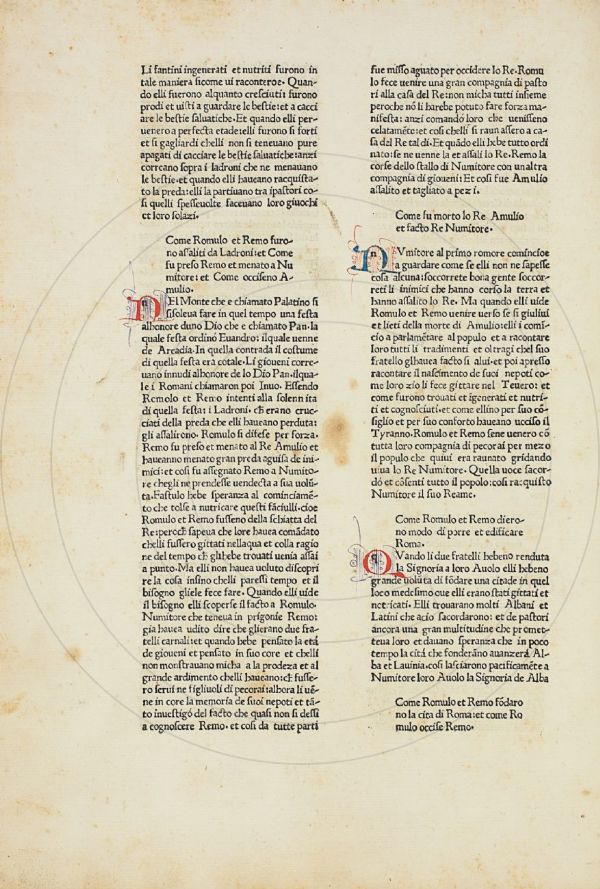 Li fantini ingenerati et nutriti furono in
tale maniera sicome ui raconteroe. Quan-
do elli fuerono alquanto cresciuti: furono
prodi et uisti a guardare le bestie: et a cacci
are le bestie saluatiche. Et quando elli per-
uenero a perfecta etade: elli furono si forti
et si gagliardi chelli non si teneuano pure
apagati di cacciare le bestie saluatiche: anzi
correano sopra i ladroni che ne menauano
le bestie. et quando elli haueano racquista-
to la preda: elli la partiuano tra ipastori co-
si quelli spesseuolte faceuano loro giuochi
et loro solazi.
Come Romulo et Remo furo-
no assaliti da Ladroni: et Come
fu preso Remo et menato a Nu
mitore: et Come occiseno A-
mulio.
NEl Monte che e chiamato Palatino si
si soleua fare in quel tempo una festa
alhonore duno Dio che e chiamato Pan. la
quale festa ordino Euandro: ilquale uenne
de Arcadia. In quella contrada il costume
di quella festa era cotale. Li gioueni corre-
uano innudi alhonore de lo Dio Pan. ilqua-
le i Romani chiamaron poi Inuo. Essendo
Romolo et Remo intenti alla solennita
di quella festa: i Ladroni. ch̄ erano cruc-
ciati della preda che elli haueano perduta:
gli assalirono. Romulo si difese per forza.
Remo fu preso et menato al Re Amulio et
haueanno menato gran preda aguisa de ini-
mici: et cosi fu assegnato Remo a Numito-
re chegli ne prendesse uendecta a sua uolū-
ta. Fastulo hebe speranza al cominciamē-
to che tolse a nutricare questi fāciulli. cioe
Romulo et Remo fusseno della schiatta del
Re: perch̄ sapeua che lore hauea comādato
chelli fussero gittati nellaqua et colla ragio
ne del tempo ch̄ gli hebe trouati uenia assai
a punto. Ma elli non hauea uoluto discopri
re la cosa insino chelli paressi tempo et il
bisogno gliele fece fare. Quando elli uide
il bisogno elli scoperse il facto a Romulo.
Numitore che teneua in prigonie Remo:
gia hauea udito dire che glierano due fra-
telli carnali: et quando hebe pensato la eta
de de gioueni et pensato in suo core et chelli
non monstrauano micha a la prodeza et al
grande ardimento chelli haueano: ch̄ fusse-
ro serui ne figliuoli di pecorai: alhora li uē-
ne in core la memoria de suoi nepoti et tā-
to inuestigo del facto che quasi non si dessi
a cognoscere Remo. et cosi da tutte parti
fue misso aguato per occidere lo Re. Romu
lo fece uenire una gran compagnia di pasto
ri alla casa del Re: non micha tutti insieme
peroche nō li harebe potuto fare forza ma-
nifesta: anzi comando loro che uenisseno
celatamēte: et cosi chelli si raunassero a ca-
sa del Re tal di. Et quādo elli hebe tutto ordi
nato: se ne uenne la et assali lo Re. Remo la
corse dello stallo di Numitore con unaltra
compagnia di gioueni: Et cosi fue Amulio
assalito et tagliato a pezi.
Come fu morto lo Re Amulio
et facto Re Numitore.
NVmitore al primo romore comincioe
a guardare come se elli non ne sapesse
cosa alcuna: soccorrete bona gente soccor-
reti li inimici che hanno corso la terra et
hanno assalito lo Re. Ma quando elli uide
Romulo et Remo uenire uerso se si giuliui
et lieti della morte di Amulio: elli i comī-
cio a parlamētare al populo et a racontare
loro tutti li tradimenti et oltragi chel suo
fratello glhauea facto si alui: et poi apresso
racontare il nascimento de suoi nepoti co-
me loro zio li fece gittare nel Teuero: et co
me furono trouati et igenerati et nutri-
ti et cognosciuti. et come ellino per suo cō-
siglio et per suo conforto haueano ucciso il
Tyranno. Romulo et Remo sene uenero cō
tutta loro compagnia di pecorai per mezo
il popolo che quiui era raunato gridando
uiua lo Re Numitore. Quella uoce sacor-
dō et cōsenti tutto il popolo: cosi racquisto
Numitore il suo Reame.
Come Romulo et Remo diero-
no modo di porre et edificare
Roma.
QVando li due fratelli hebeno renduta
la Signoria a loro Auolo elli hebeno
grande uoluta di fōdare una citade in quel
loco medesimo oue elli erano stati gittati et
notricati. Elli trouarano molti Albani et
Latini che acio sacordarono: et de pastori
ancora una gran multitudine che promet-
teua loro et dauano speranza che in poco
tempo la cita che fonderāno auanzerā Al-
ba et Lauinia. cosi lasciarono pacificamēte a
Numitore loro Auolo la Signoria de Alba
Come Romulo et Remo fōdaro
no la cita di Roma: et come Ro
mulo occise Remo.